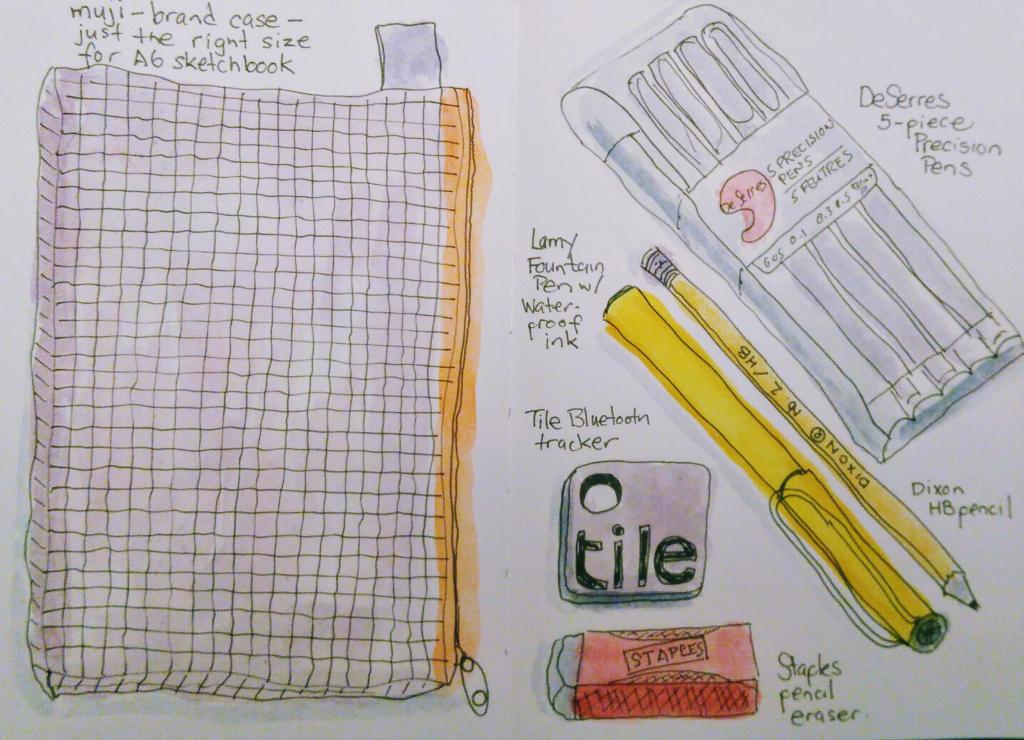 muji-brand case-
just the right size
for A6 sketchbook
DeSerres
5-piece
Precision
Pens
5 PRECISION
PENS
5 FEUTRES
DeSerres
0.05 0.1 0.3 0.5
Lamy
Fountain
Pen w/
Water-
proof
ink
DIXON ® No. 2 / HB
Tile Bluetooth
tracker
tile
Dixon
HB pencil
STAPLES
Staples
pencil
eraser.